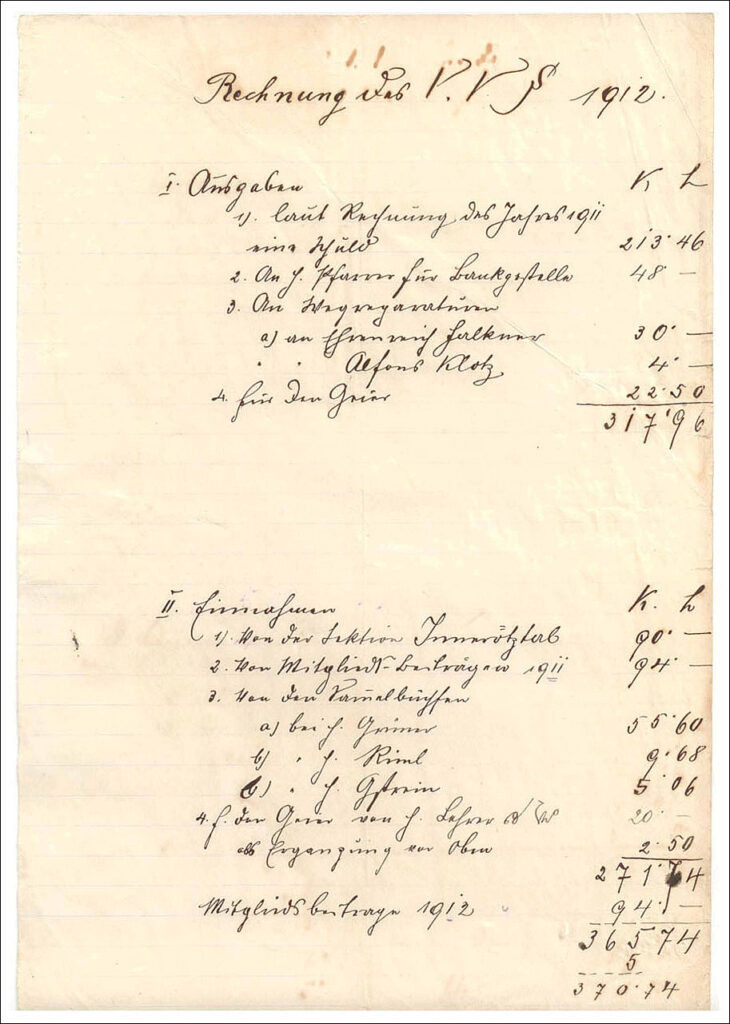 Rechnung des V. V. S 1912.
I. Ausgaben K h
1). laut Rechnung des Jahres 1911
eine Schuld 213·46
2. An H. Pfarrer für Bankgestelle 48 —
3. An Wegreparaturen
a) an Ehrenreich Falkner 30· —
" " Alfons Klotz 4· —
4. Für den Geier 22·50
317·96
II. Einnahmen K. h
1). Von der Sektion Innerötztal 90· —
2. Von Mitglieds-Beiträgen 1911 94· —
3. Von den Sammelbüchsen
a) bei H. Grüner 55·60
b) " H. Riml 9·68
c) " H. Gstrein 5·06
4. f. den Geier von H. Lehrer 20· —
als Ergänzung von Oben 2·50
271·74
Mitgliedsbeitrage 1912 94· —
365 74
5
370·74